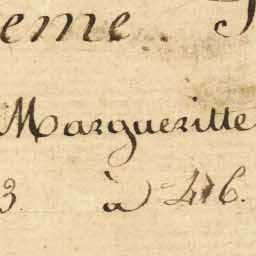 eme.
Margueritte
3. à 416.